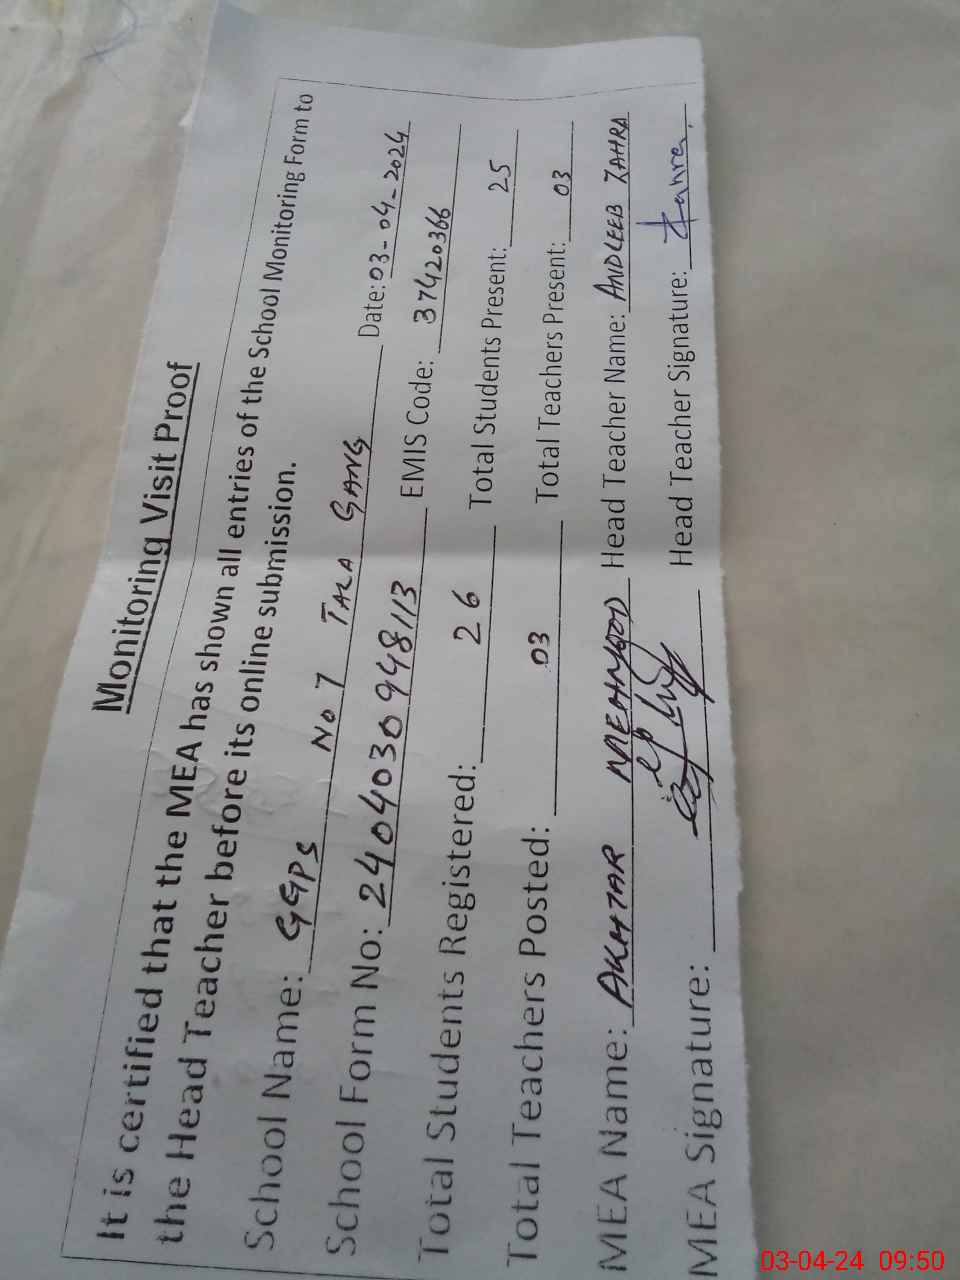 Monitoring Visit Proof
It is certified that the MEA has shown all entries of the School Monitoring Form to
the Head Teacher before its online submission.
School Name: GGPS No 7 TALA GANG Date: 03-04-2024
School Form No: 24040309 48113 EMIS Code: 37420366
Total Students Registered: 26 Total Students Present: 25
Total Teachers Posted: 03 Total Teachers Present: 03
MEA Name: AKHTAR MEHMOOD Head Teacher Name: ANDLEEB ZAHRA
MEA Signature: Head Teacher Signature: Zahra
03-04-24 09:50